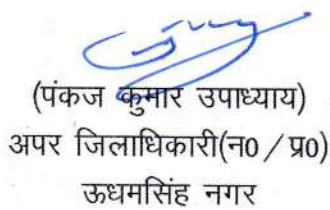 (पंकज कुमार उपाध्याय)
अपर जिलाधिकारी(न0 / प्र0)
ऊधमसिंह नगर